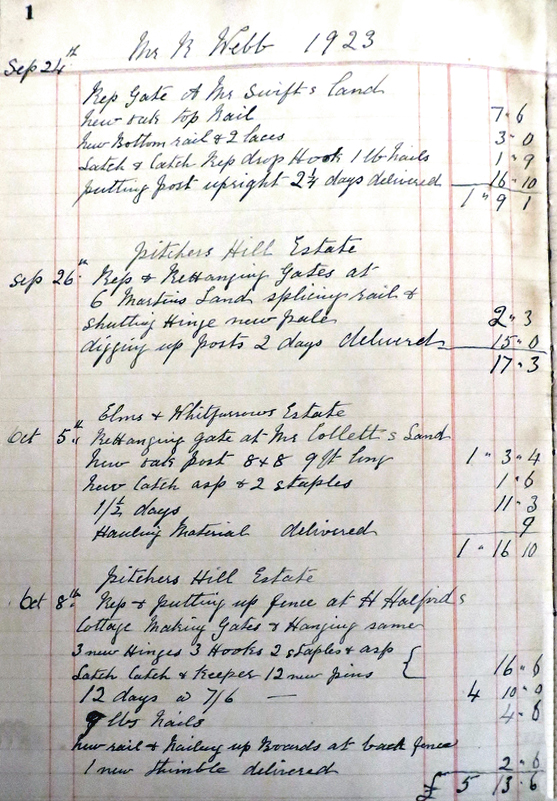 1
Mr R Webb 1923
Sep 24th
Rep Gate At Mr Swift's Land
New oak Top Rail 7 " 6
New Bottom rail & 2 laces 3 " 0
Latch & Catch Rep drop Hook 1 lb Nails 1 " 9
putting post upright 2¼ days delivered 16 " 10
1 " 9 1
Pitchers Hill Estate
Sep 26th Rep & ReHanging Gates at
6 Martins Land splicing rail &
shutting Hinge new pale 2 " 3
digging up posts 2 days delivered 15 " 0
17 " 3
Elms & Whitfurrows Estate
Oct 5th ReHanging gate at Mr Collett's Land
New oak post 8 x 8 9 ft long 1 " 3 " 4
New Catch asp & 2 staples 1 " 6
1½ days 11 " 3
Hauling Material delivered 9
1 " 16 10
Pitchers Hill Estate
Oct 8th Rep & putting up fence at H Halfords
Cottage Making Gates & Hanging same
3 new Hinges 3 Hooks 2 staples & asp
Latch Catch & Keeper 12 new pins 16 " 6
12 days @ 7/6 — 4 10 " 0
9 lbs Nails 4 " 6
New rail & Nailing up Boards at back fence
1 new thimble delivered 2 " 6
£ 5 13 " 6